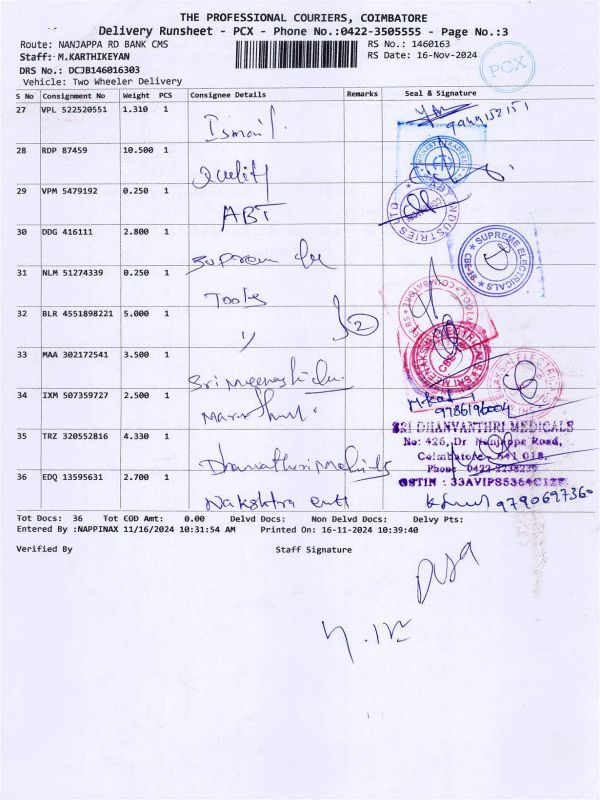 THE PROFESSIONAL COURIERS, COIMBATORE
Delivery Runsheet - PCX - Phone No.:0422-3505555 - Page No.:3
Route: NANJAPPA RD BANK CMS
RS No.: 1460163
Staff: M.KARTHIKEYAN
RS Date: 16-Nov-2024
DRS No.: DCJB146016303
Vehicle: Two Wheeler Delivery
PCX
S No Consignment No Weight PCS Consignee Details Remarks Seal & Signature
27 VPL 522520551 1.310 1
Ismail.
28 RDP 87459 10.500 1
Quality
29 VPM 5479192 0.250 1
ABT
ABT INDUSTRIES LTD
30 DDG 416111 2.800 1
SUPREME ELECTRICALS
CBE-18
31 NLM 51274339 0.250 1
Tools
32 BLR 4551898221 5.000 1
〃 2
33 MAA 302172541 3.500 1
34 IXM 507359727 2.500 1
9786196004
35 TRZ 320552816 4.330 1
SRI DHANVANTHRI MEDICALS
No: 426, Dr Nanjappa Road,
Coimbatore - 641 018.
Phone 0422-2238239
GSTIN : 33AVIPS5364C1ZE
36 EDQ 13595631 2.700 1
9790697360
Tot Docs: 36 Tot COD Amt: 0.00 Delvd Docs: Non Delvd Docs: Delvy Pts:
Entered By :NAPPINAX 11/16/2024 10:31:54 AM Printed On: 16-11-2024 10:39:40
Verified By Staff Signature